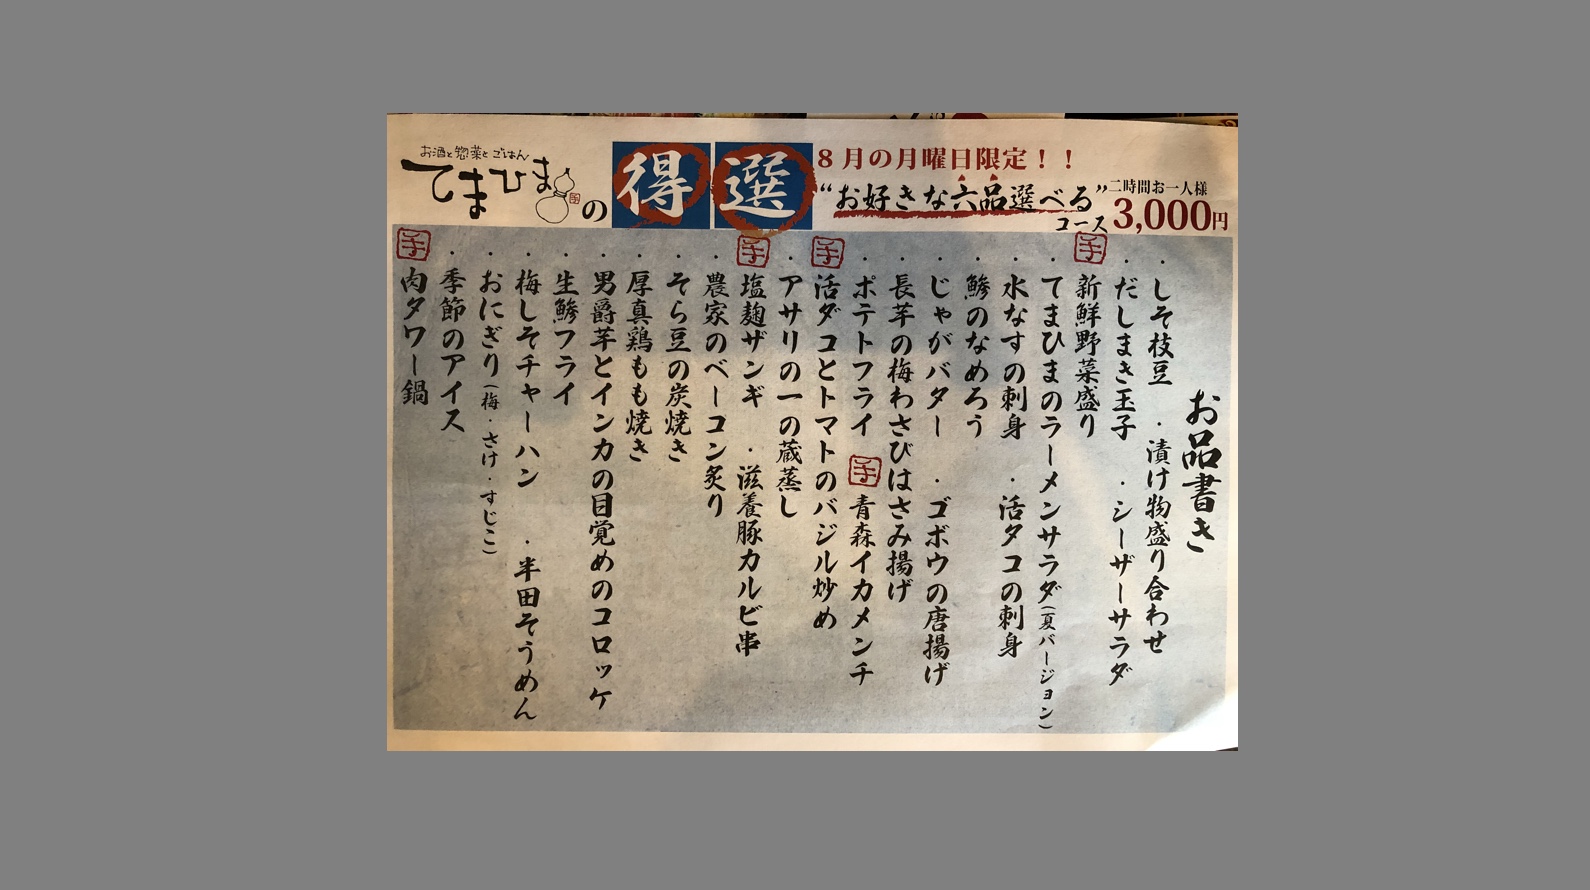 お酒と惣菜とごはん
てまひまの得選
8月の月曜日限定！！
“お好きな六品選べる”
コース
二時間お一人様
3,000円
お品書き
・しそ枝豆 ・漬け物盛り合わせ
・だしまき玉子 ・シーザーサラダ
手 新鮮野菜盛り
・てまひまのラーメンサラダ（夏バージョン）
・水なすの刺身 ・活タコの刺身
・鯵のなめろう
・じゃがバター ・ゴボウの唐揚げ
・長芋の梅わさびはさみ揚げ
・ポテトフライ 手 青森イカメンチ
手 活ダコとトマトのバジル炒め
・アサリの一の蔵蒸し
手 塩麹ザンギ ・滋養豚カルビ串
・農家のベーコン炙り
・そら豆の炭焼き
・厚真鶏もも焼き
・男爵芋とインカの目覚めのコロッケ
・生鯵フライ
・梅しそチャーハン ・半田そうめん
・おにぎり（梅・さけ・すじこ）
・季節のアイス
手 肉タワー鍋